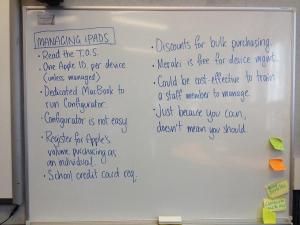 MANAGING IPADS
• Read the T.O.S.
• One Apple ID per device
(unless managed)
• Dedicated MacBook to
run Configurator.
• Configurator is not easy
• Register for Apple's
volume purchasing as
an individual.
• School credit card req.
• Discounts for bulk purchasing.
• Meraki is free for device mgmt.
• Could be cost-effective to train
a staff member to manage.
• Just because you can,
doesn't mean you should.